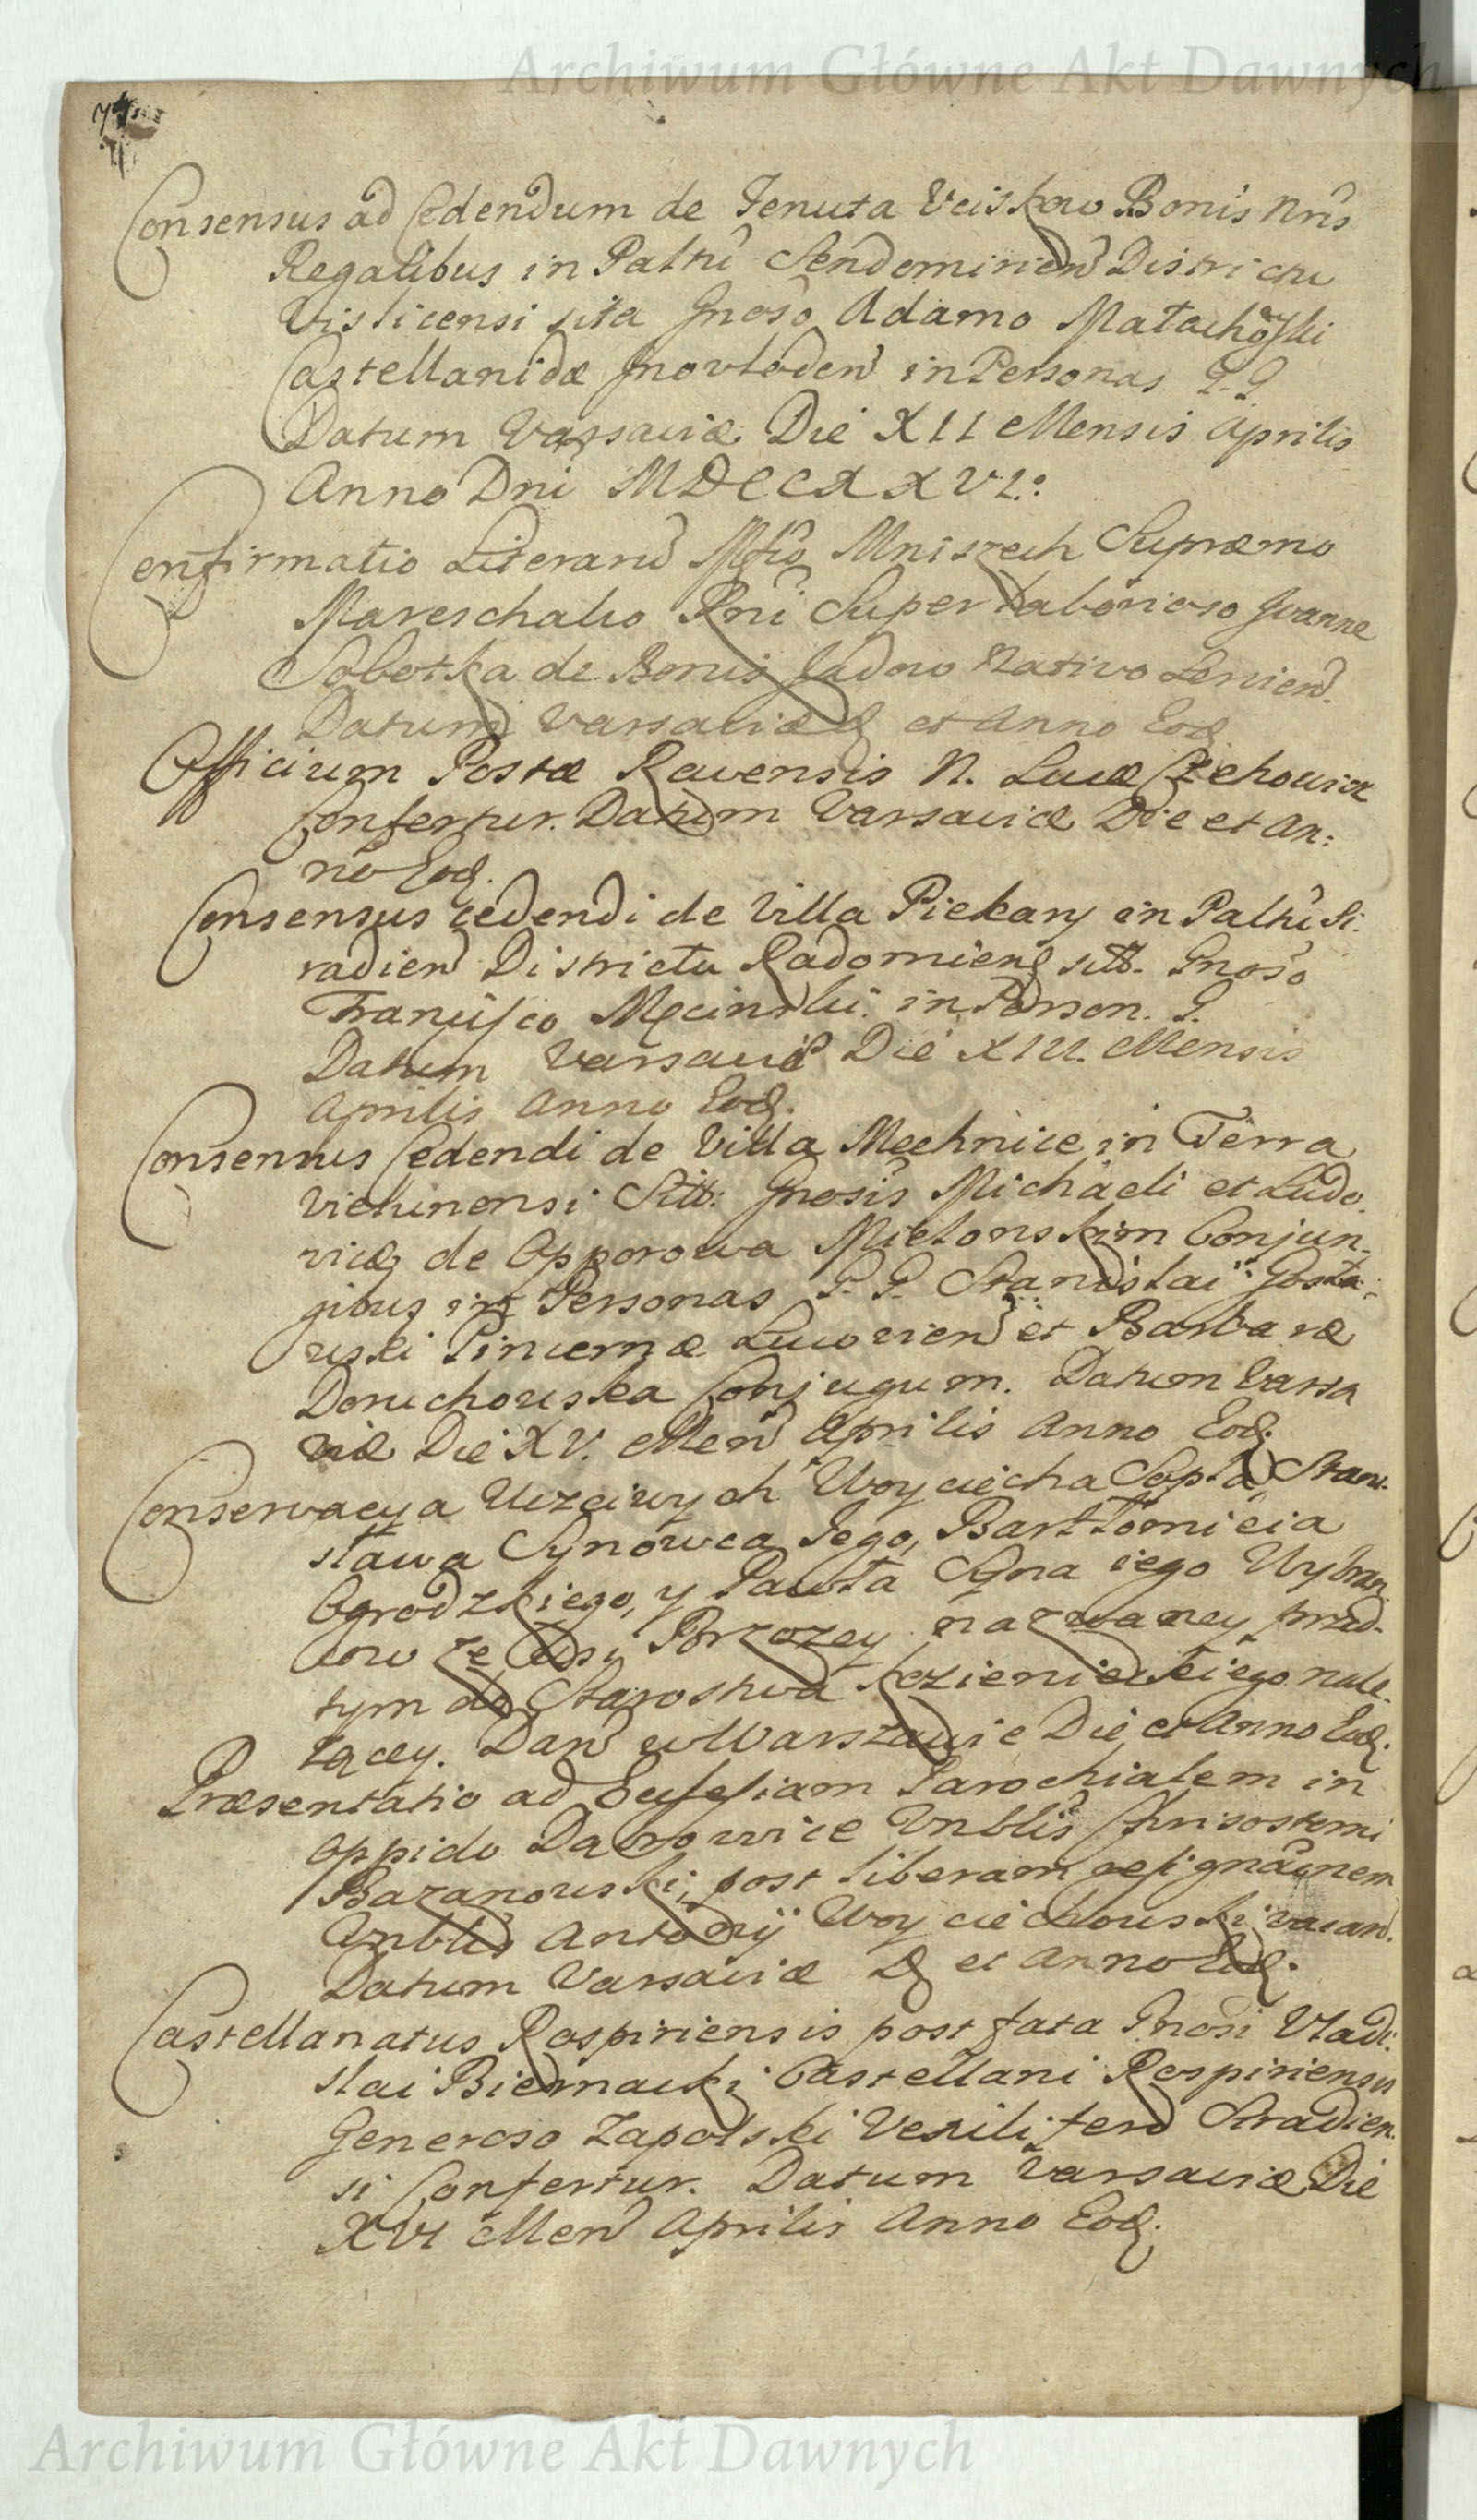 Archiwum Główne Akt Dawnych
74
Consensus ad Cedendum de Tenuta Veiskow Bonis Nris
Regalibus in Paltu Sendomirien Districtu
Visticensi sita Gnoso Adamo Małachowski
Castellanidæ Jnovloden in Personas P. P.
Datum Varsaviæ Die XII Mensis Aprilis
Anno Dni MDCCXXVI:
Confirmatio Literaru Mfio Mniszech Supræmo
Mareschalio Rni Super Laborioso Joanne
Sobotka de Bonis Jadow Nativo
Datum Varsaviæ D et Anno Eod
Officium Postæ Ravensis N. Lucæ Czechowicz
Confertur. Datum Varsaviæ Die et An:
no Eod.
Consensus cedendi de Villa Piekary in Paltu Si:
radien Districtu Radomien sitt. Gnoso
Francisco Mecinski in Person. P.
Datum Varsaviæ Die XIII. Mensis
Aprilis Anno Eod.
Consensus Cedendi de Villa Mechnice in Terra
Vielunensi Sitt: Gnosis Michaeli et Ludo,
vicæ de Opporowa Mielonskim Conjun,
gibus in Personas P. P. Stanislai
Pincernæ et Barbaræ
Doruchowska Conjugum. Datum Varsa
viæ Die XV. Men Aprilis Anno Eod.
Conservacya Uczciwych Woyciecha Sopła, Stani-
sława Synowca Jego, Bartłomieia
Ogrodzkiego, y Pawła Syna iego Wybran
cow ze Wsi Brzozey nazwaney przed-
tym do Starostwa kozienieckiego nale-
żącey. Dan w Warszawie Die et Anno Eod.
Præsentatio ad Ecclesiam Parochialem in
oppido Vnblis Chrisostomi
Bazanowski, post liberam resignãonem
Vnblis Antonij Woyciechowski vacan.
Datum Varsaviæ D et Anno Eod.
Castellanatus Rospiriensis post fata Gnosi Vladi:
slai Biernacki Castellani Rospiriensis
Generoso Zapolski Vexillifero Siradien.
si Confertur. Datum Varsaviæ Die
XVI Men Aprilis Anno Eod.
Archiwum Główne Akt Dawnych